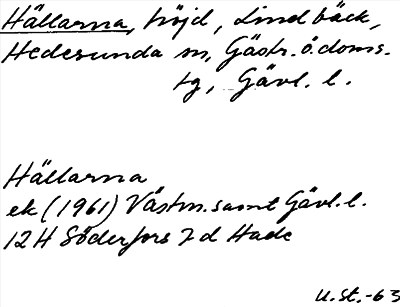 Hällarna, höjd, Lindbäck,
Hedesunda sn, Gästr. ö. doms.
tg, Gävl. l.
Hällarna
ek (1961) Västm. samt Gävl. l.
12 H Söderfors 7 d Hade
U. St. -63